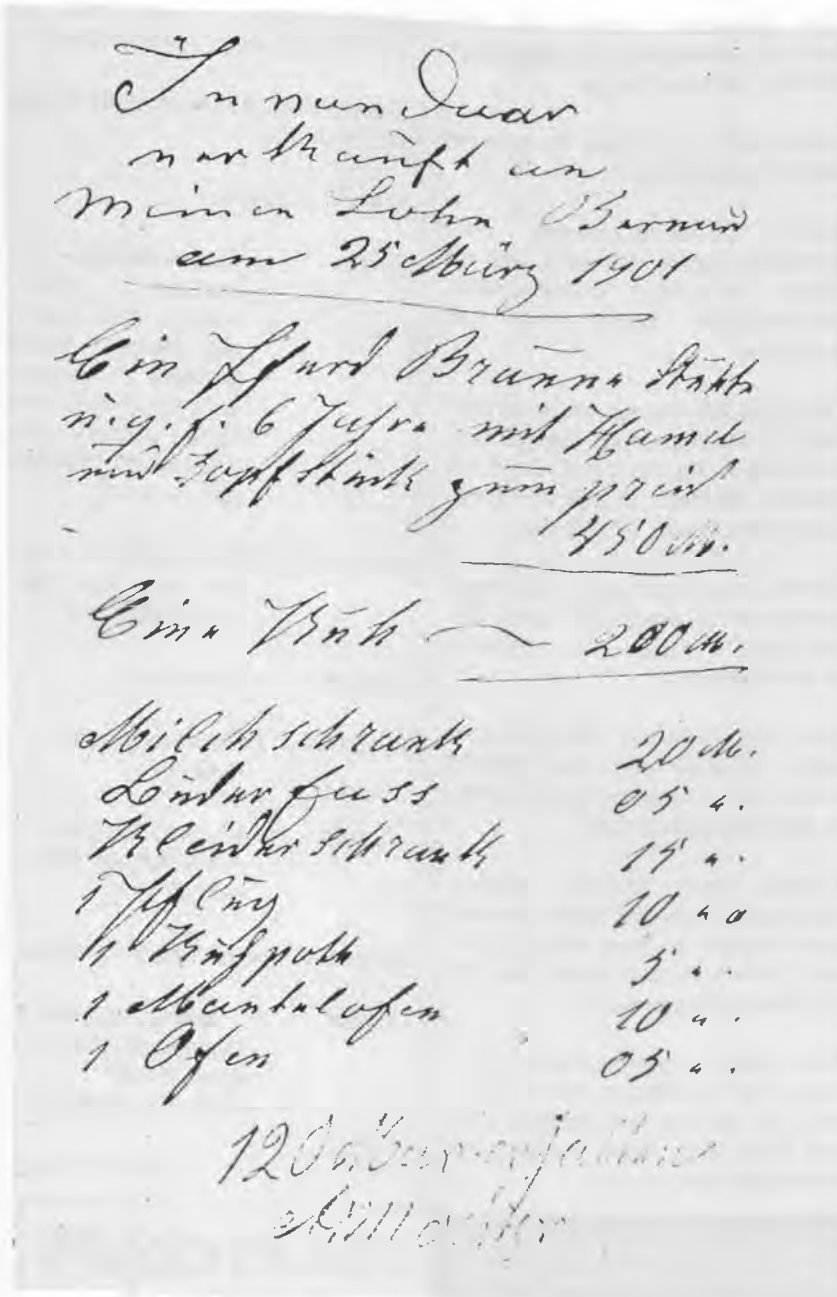 Inventar
verkauft an
meinen Sohn Bernard
am 25 März 1901
Ein Pferd Braune Stutte
6 Jahre mit Hamel
und Kopfstück zum preis
450 M.
Eine Kuh — 200 M.
Milchschrank 20 M.
Buderfass 05 "
Kleiderschrank 15 "
1 Pflug 10 "
1 Kuhpott 5 "
1 Mantelofen 10 "
1 Ofen 05 "
120